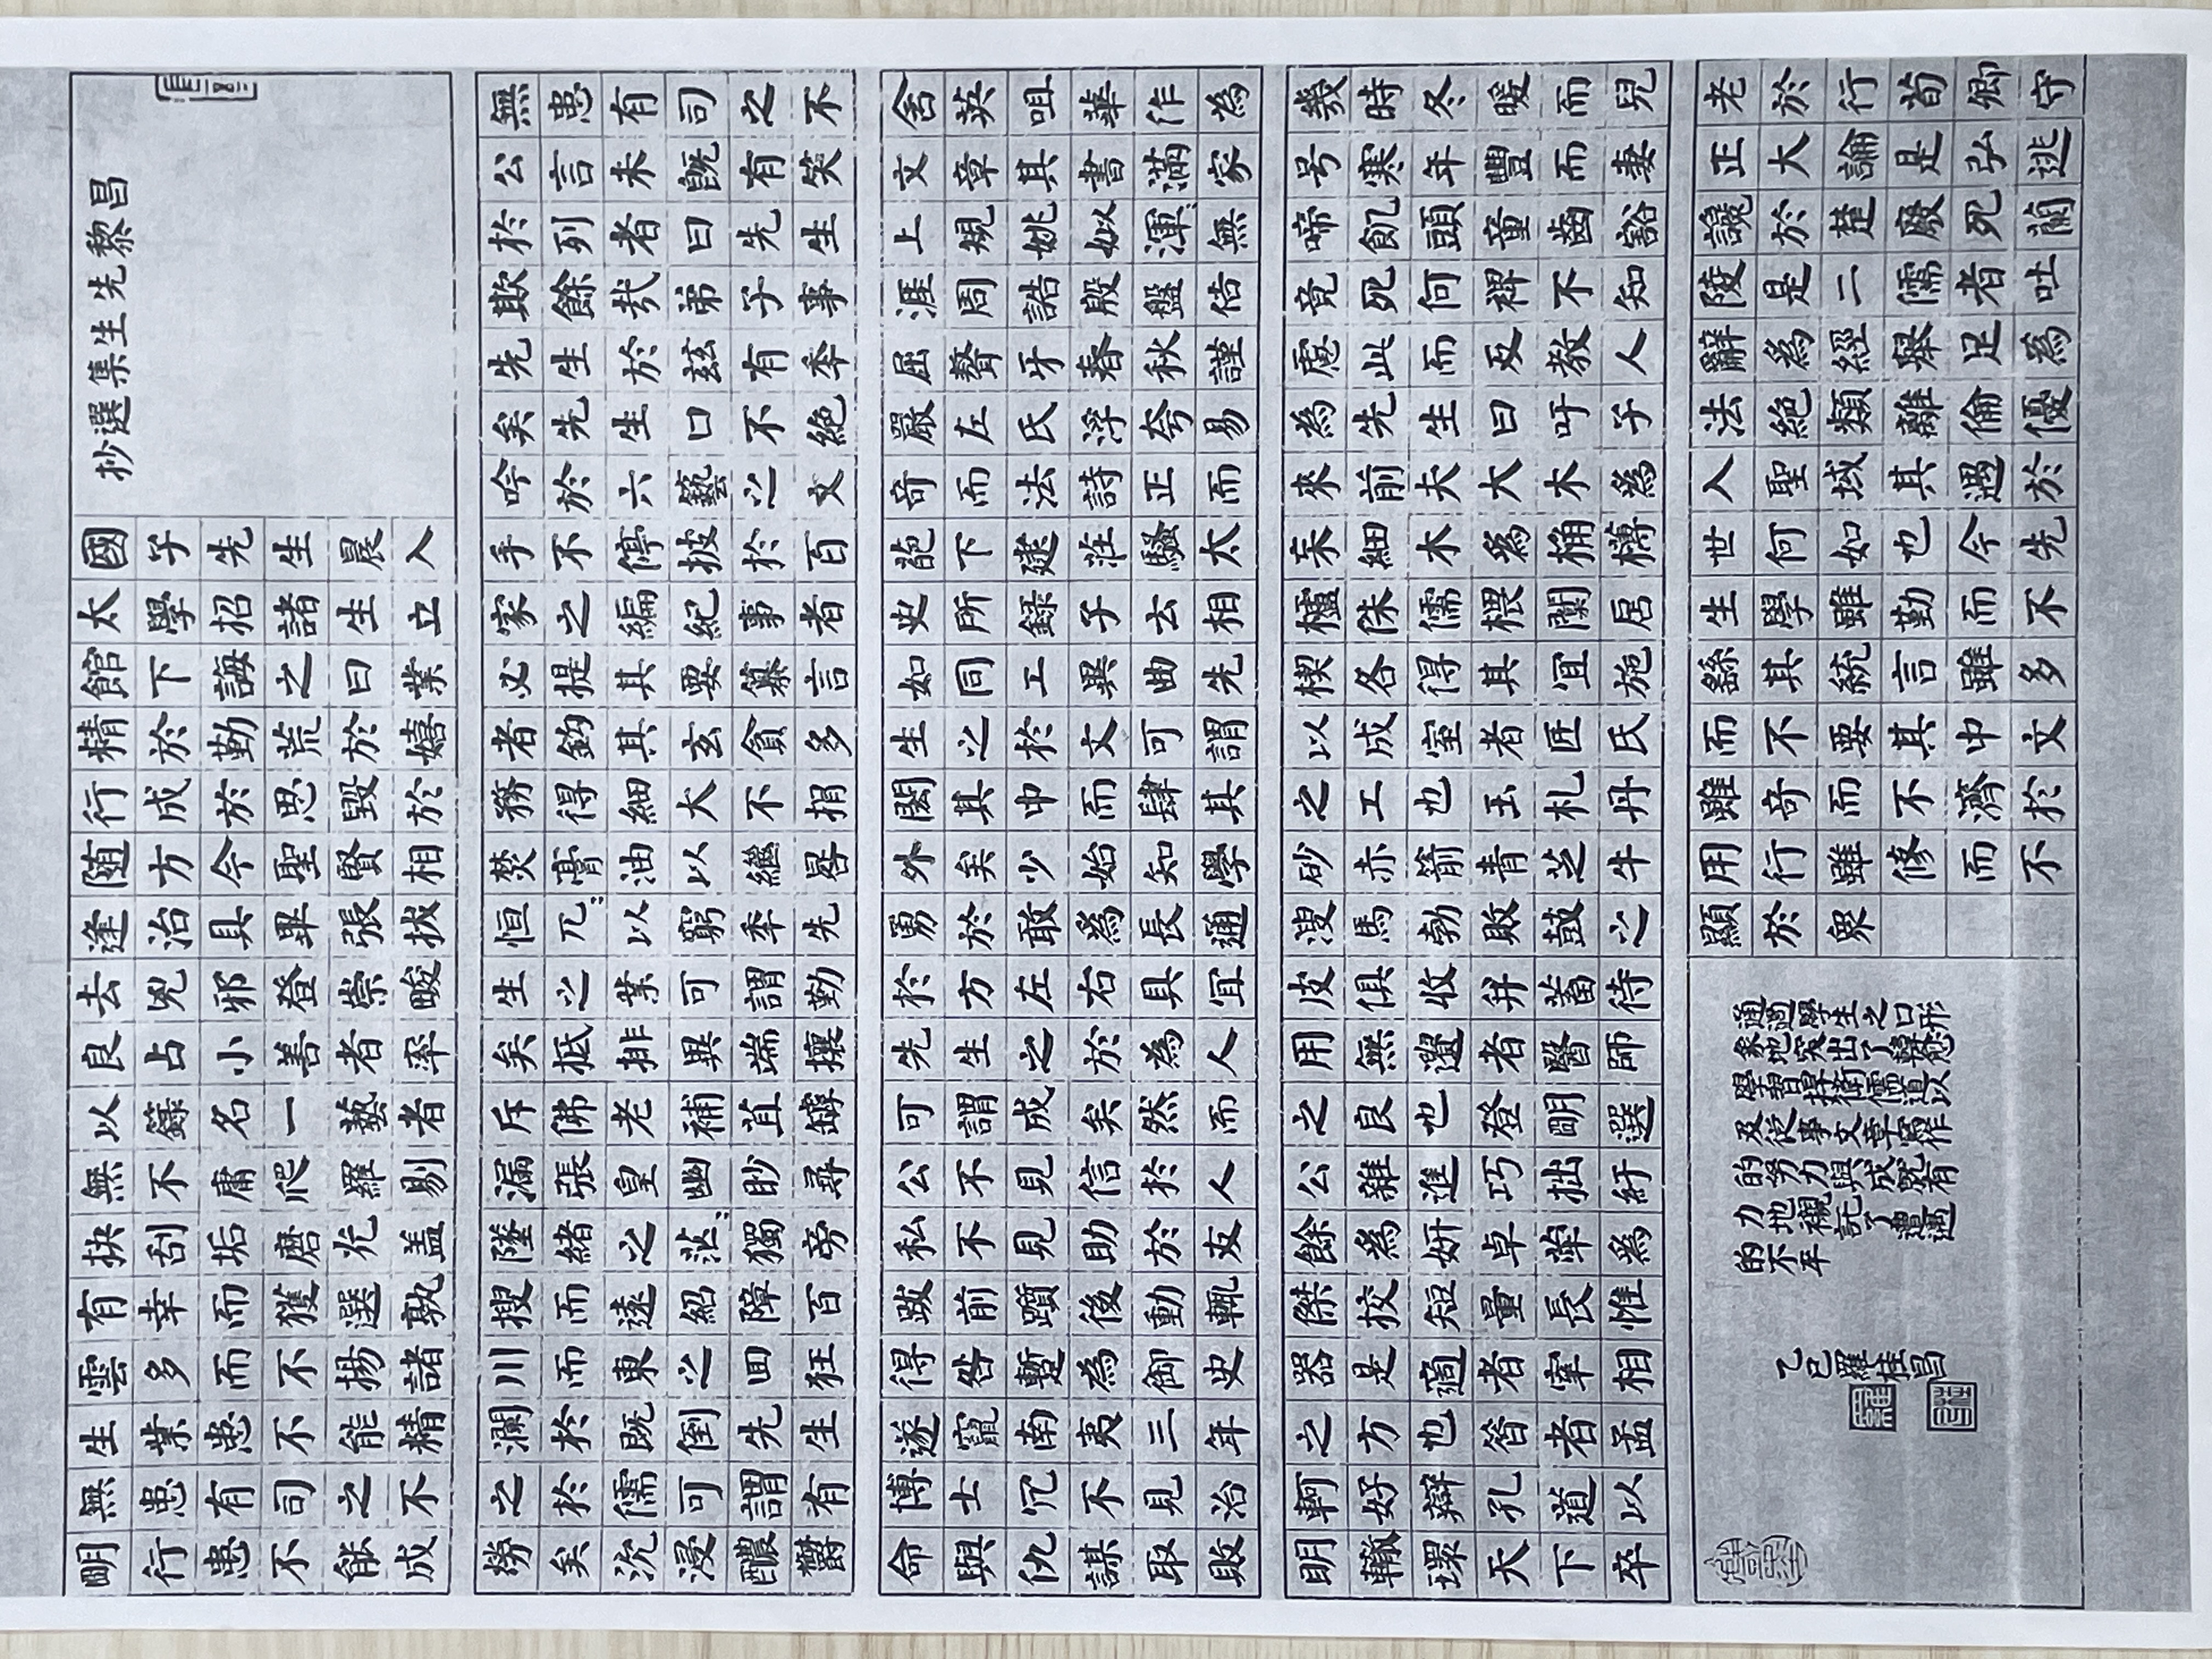 昌黎先生集選抄
國子先生晨入
太學招諸生立
館下誨之曰業
精於勤荒於嬉
行成於思毀於
随方今聖賢相
逢治具畢張拔
去兇邪登崇畯
良占小善者率
以錄名一藝者
無不庸爬羅剔
抉刮垢磨光盖
有幸而獲選孰
雲多而不揚諸
生業患不能精
無患有司之不
明行患不能成
無患有司之不
公言未旣有笑
於列者曰先生
欺餘哉弟子事
先生於兹有季
矣先生口不絶
吟於六藝之文
手不停披於百
家之編紀事者
必提其要纂言
者鈎其玄貪多
務得細大不捐
焚膏油以繼晷
恒兀〻以窮季先
生之業可謂勤
矣抵排異端攘
斥佛老補苴罅
漏張皇幽眇尋
墜緒之茫〻獨旁
搜而遠紹障百
川而東之回狂
瀾於既倒先生
之於儒可謂有
勞矣沈浸醲鬱
含英咀華作為
文章其書滿家
上規姚姒渾〻無
涯周誥殷盤佶
屈聱牙春秋謹
嚴左氏浮夸易
奇而法詩正而
葩下逮莊騷太
史所録子云相
如同工異曲先
生之於文可謂
閎其中而肆其
外矣少始知學
勇於敢爲長通
於方左右具宜
先生之於為人
可謂成矣然而
公不見信於人
私不見助於友
跋前躓後動輒
得咎暫為御史
遂竄南夷三年
博士冗不見治
命與仇謀取敗
幾時冬暖而兒
号寒年豐而妻
啼飢頭童齒豁
竟死何裨不知
慮此而反教人
為先生曰吁子
來前夫大木爲
杗細木爲桷欂
櫨侏儒椳闑扂
楔各得其宜施
以成室者匠氏
之工也玉札丹
砂赤箭青芝牛
溲馬勃敗鼓之
皮俱收并蓄待
用無遺者醫師
之良也登明選
公雜進巧拙紆
餘爲妍卓犖爲
傑挍短量長惟
器是適者宰相
之方也昝者孟
軻好辯孔道以
明轍環天下卒
老於行荀卿守
正大論是弘逃
讒於楚廢死蘭
陵是二儒者吐
辭爲經舉足為
法絶類離倫優
入聖域其遇於
世何如也今先
生學雖勤而不
繇其統言雖多
而不要其中文
雖奇而不濟於
用行雖修而不
顯於衆
通過學生之口形
象地突出了韓愈
學習捍衛儒道以
及從事文章寫作
的努力與成就有
力地襯託了遭遇
的不年
乙巳羅桂昌